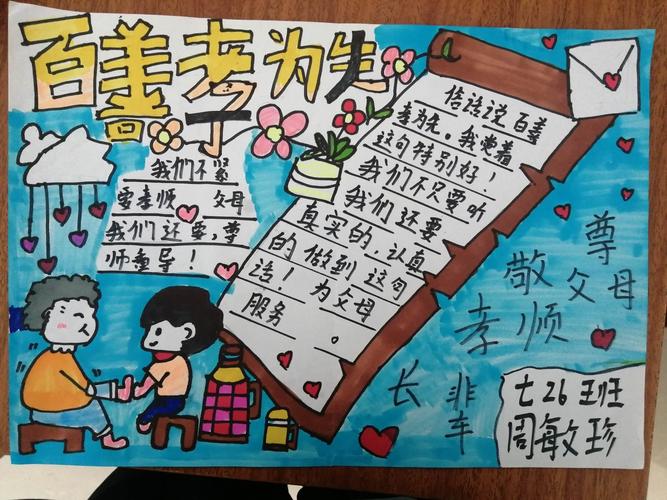 百善孝为先
我们不紧
要孝顺 父母
我们还要,尊
师重导！
俗话说 百善
孝为先。我觉着
这句特别好！
我们不只要听
我们还要
真实的,认真
的做到 这句
话！为父母
服务 。
尊敬父母
孝顺长辈
七26班
周敏珍